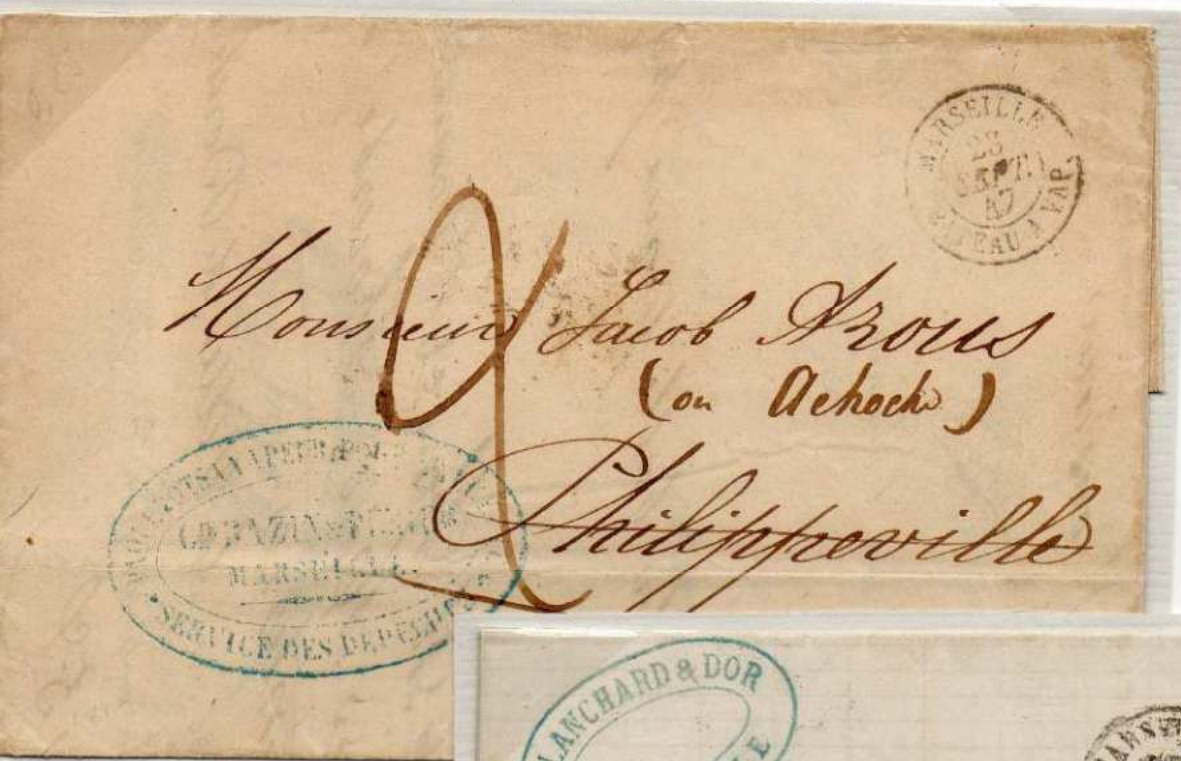 MARSEILLE
28
SEPT.
47
BATEAU A VAP.
Monsieur Jacob Azous
(ou Achoche)
2
Philippeville
MARSEILLE.
SERVICE DES DEPECHES
LANCHARD & DOR